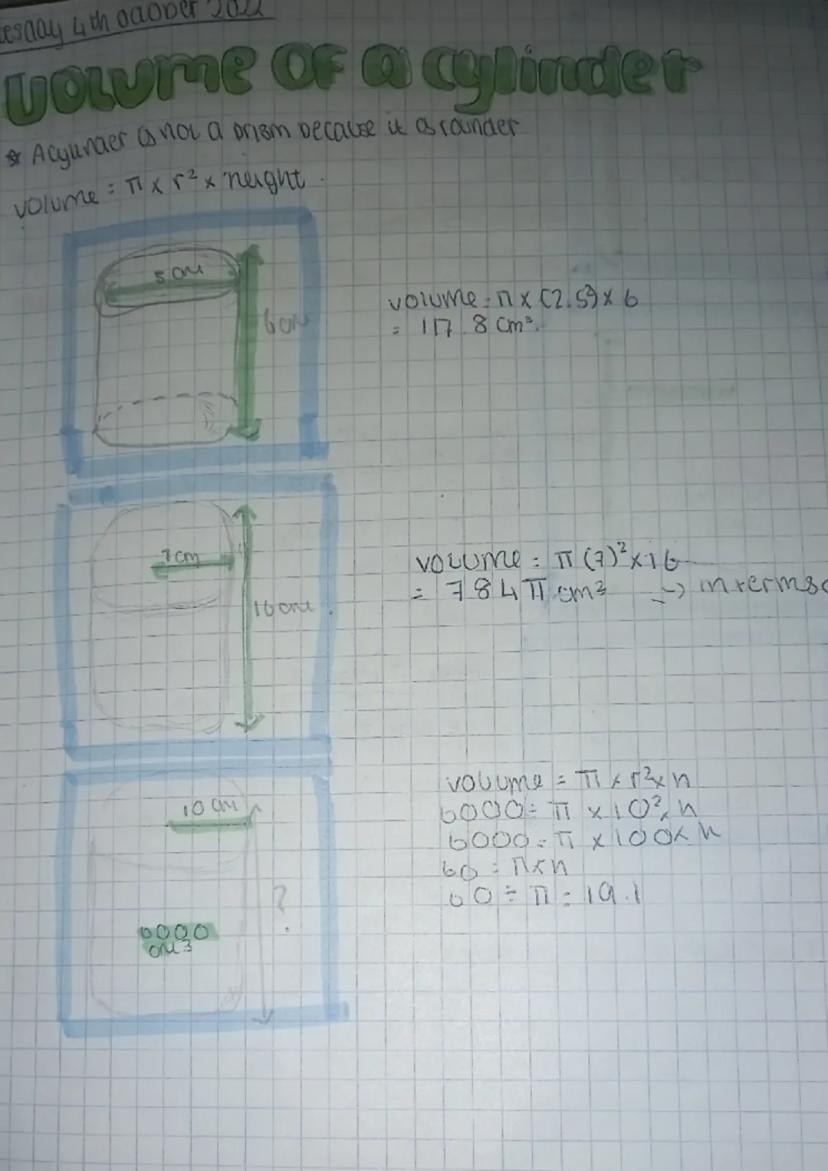 esday 4th october 2022
Volume OF a cylinder
* A cylinder is not a prism because it is rounder
volume = π × r² × height.
5cm
6cm
volume = π × (2.5²) × 6
= 117.8 cm³.
7cm
16cm
volume = π (7)² × 16
= 784π cm³ → in terms o
10cm
?
6000
cm3
volume = π × r² × h
6000 = π × 10² × h
6000 = π × 100 × h
60 = π × h
60 ÷ π = 19.1